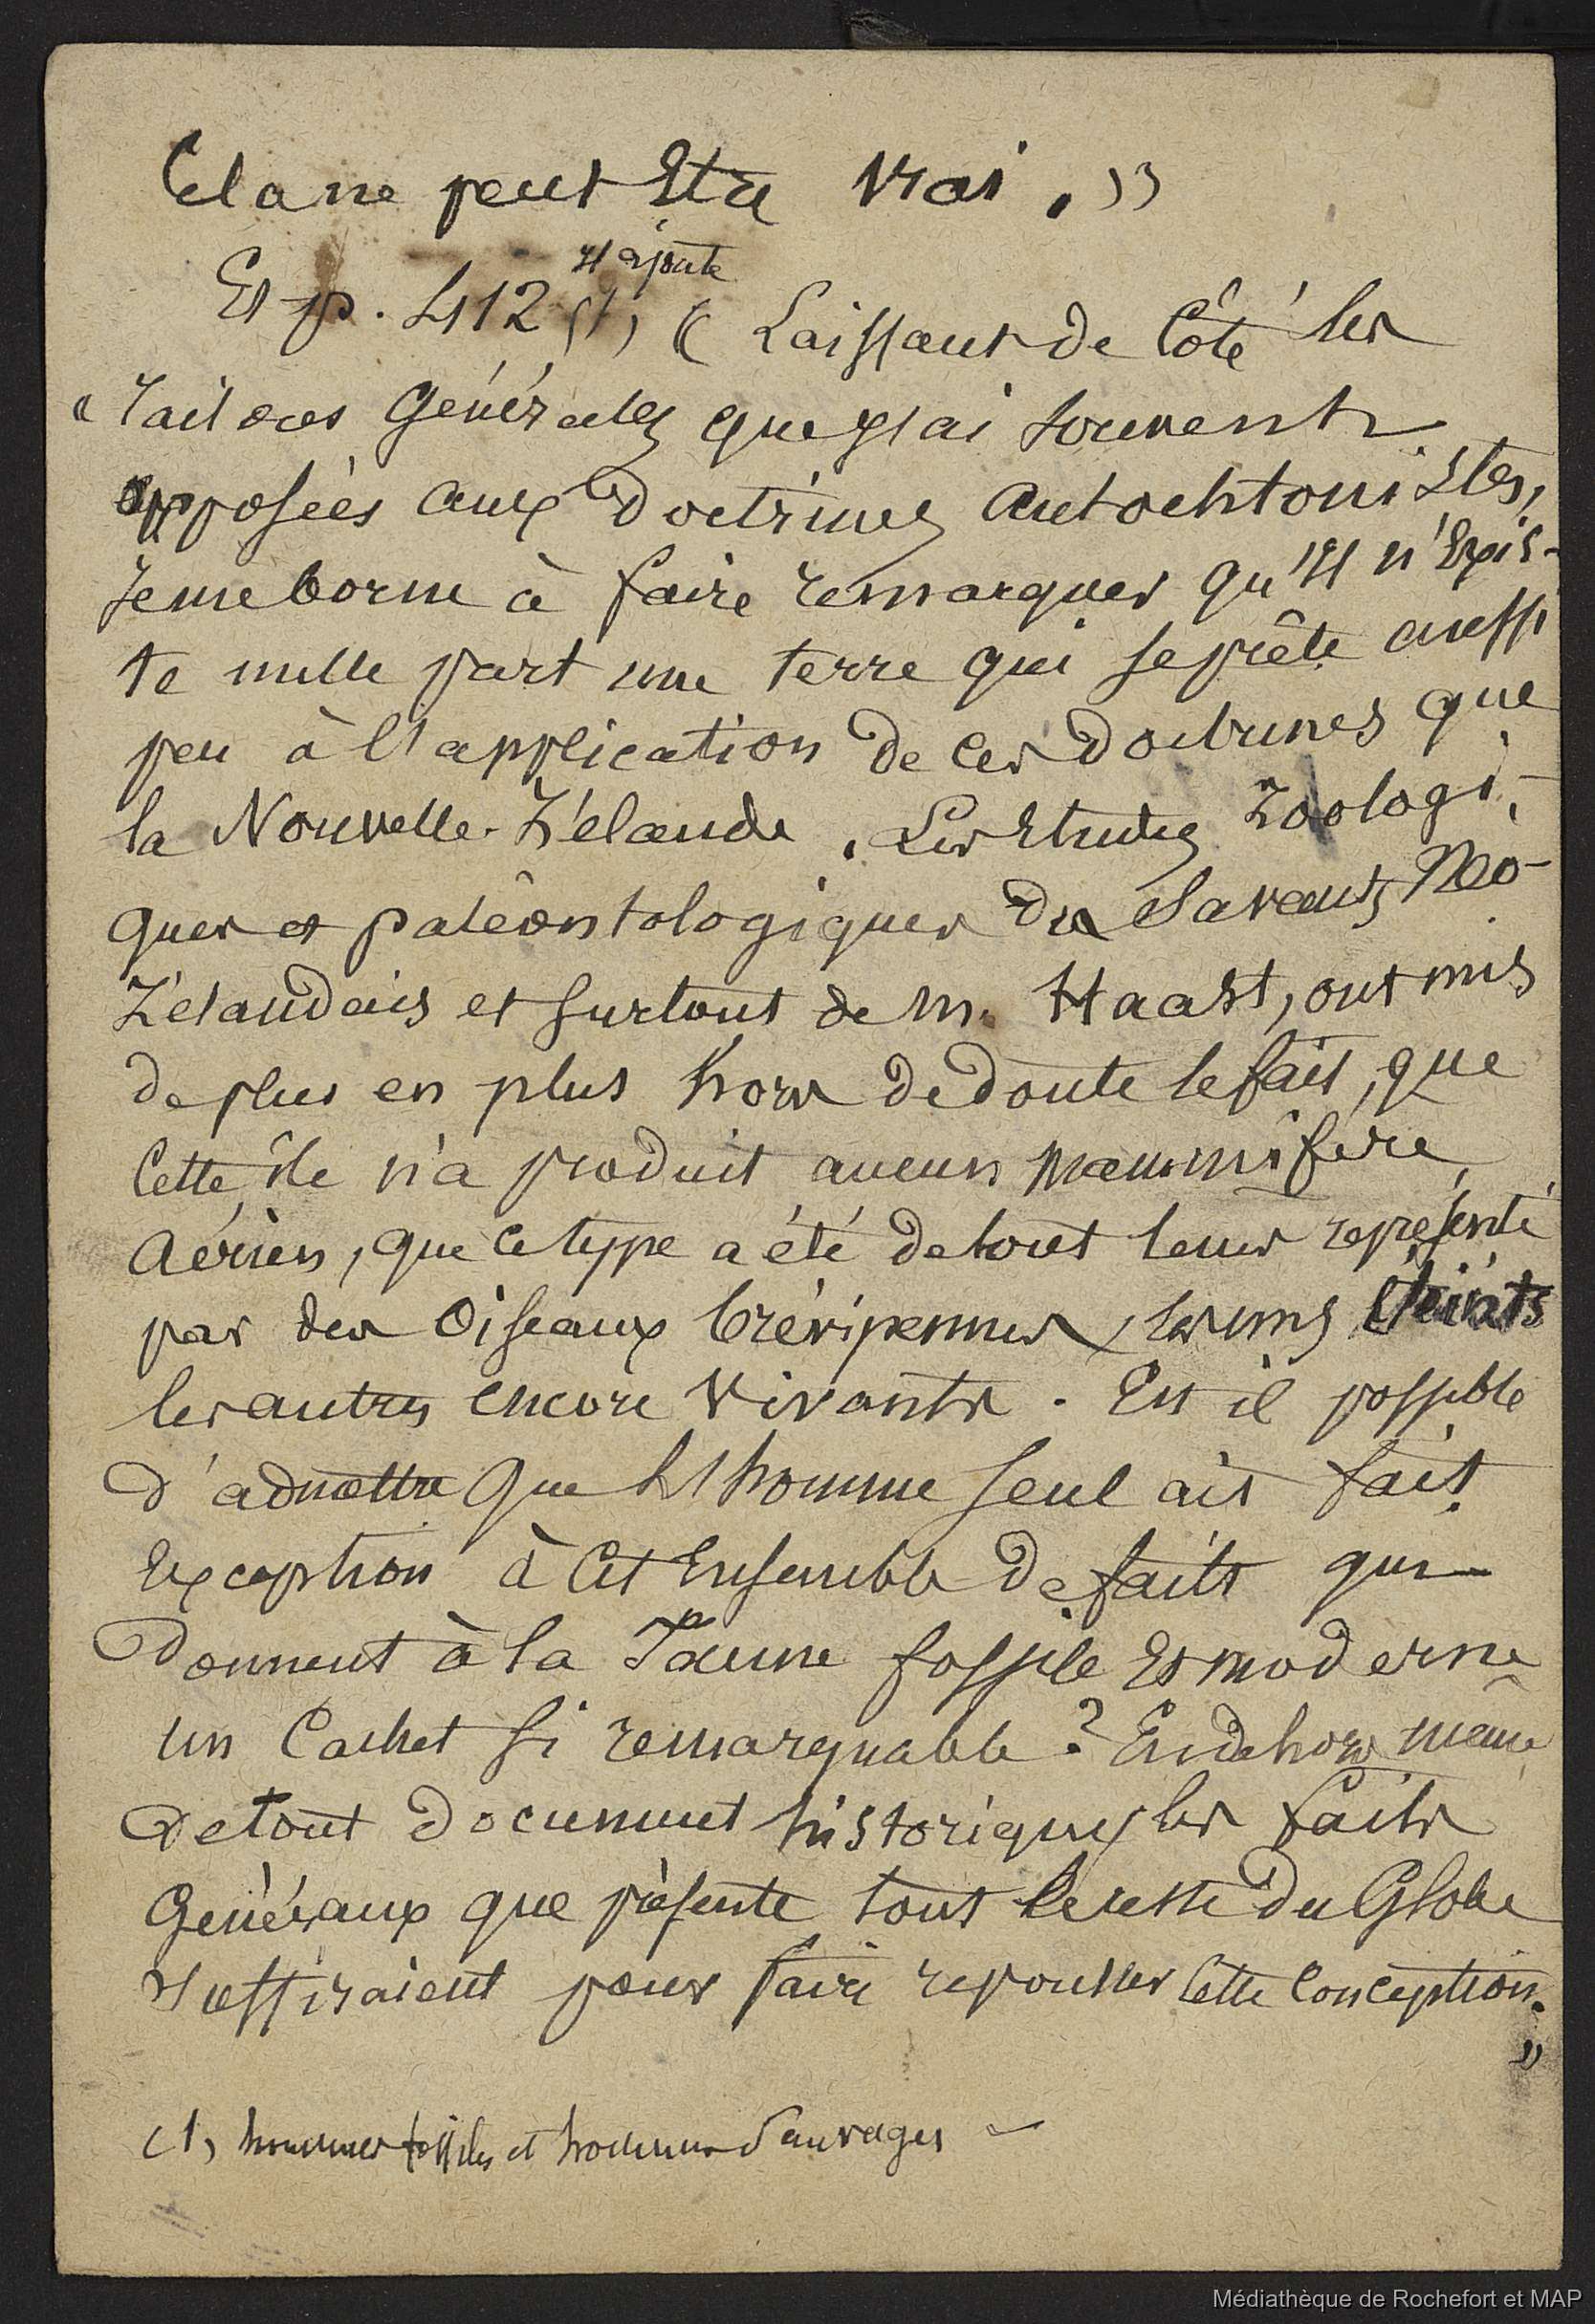 Cela ne peut Etre vrai. »
Il ajoute
Et p. 412 (1) « Laissant de Côté les
« raisons Générales que j'ai souvent
opposées aux Doctrines autochtonistes,
Je me borne à faire remarquer qu'Il n'Exis-
te nulle part une terre qui se prête aussi
peu à l'application de ces doctrines que
la Nouvelle-Zélande. Les Etudes Zoologi-
ques et paléontologiques des Savants Néo-
Zélandais et surtout de M. Haast, ont mis
de plus en plus hors de doute le fait, que
Cette île n'a produit aucun mammifère
Aérien, que ce type a été de tout temps représenté
par des Oiseaux brévipennes, les uns éteints
les autres encore vivants. Est il possible
d'admettre que l'homme seul ait fait
Exception à Cet Ensemble de faits qui
Donnent à la Faune fossile Et moderne
un Cachet si remarquable ? En dehors même
De tout document historique, les faits
Généraux que présente tout le reste du Globe
suffiraient pour faire repousser Cette Conception.
»
(1) hommes fossiles et hommes Sauvages
Médiathèque de Rochefort et MAP